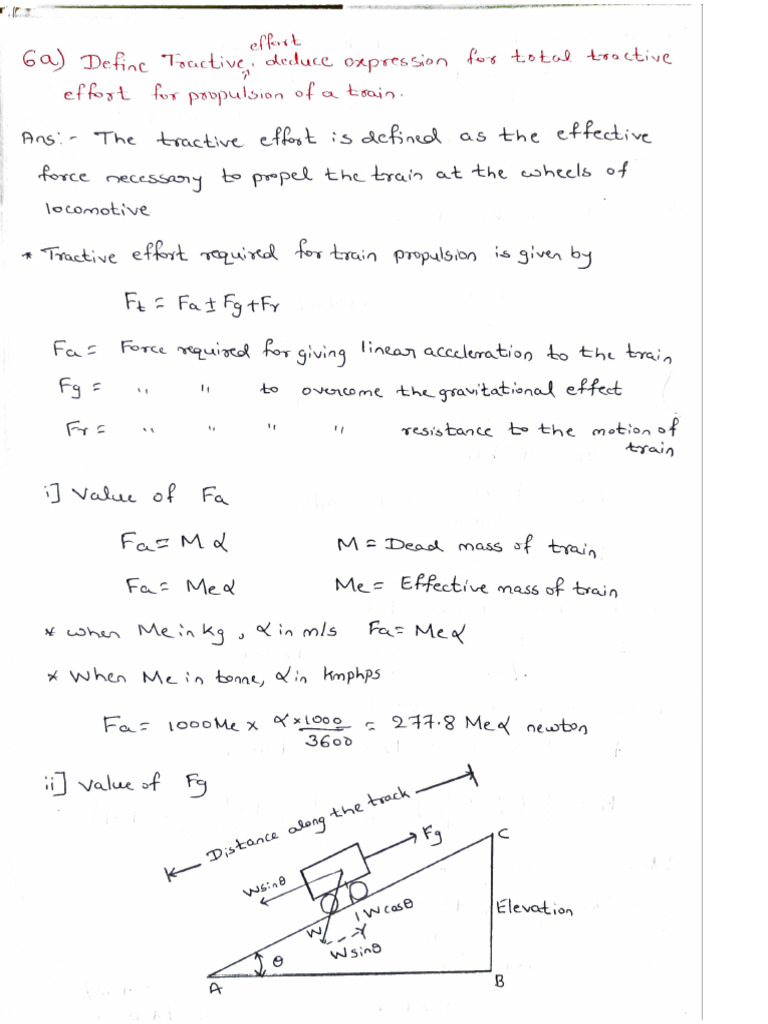 effort
6a) Define Tractive, deduce expression for total tractive
effort for propulsion of a train.
Ans:- The tractive effort is defined as the effective
force necessary to propel the train at the wheels of
locomotive
* Tractive effort required for train propulsion is given by
Ft = Fa ± Fg + Fr
Fa = Force required for giving linear acceleration to the train
Fg = " " to overcome the gravitational effect
Fr = " " " " resistance to the motion of
train
i] Value of Fa
Fa = M α M = Dead mass of train
Fa = Meα Me = Effective mass of train
* when Me in kg, α in m/s Fa = Meα
* When Me in tonne, α in kmphps
Fa = 1000Me × α×1000/3600 = 277.8 Meα newton
ii] Value of Fg
Distance along the track
Fg
C
Wsinθ
Wcosθ
Elevation
W
Wsinθ
θ
A
B